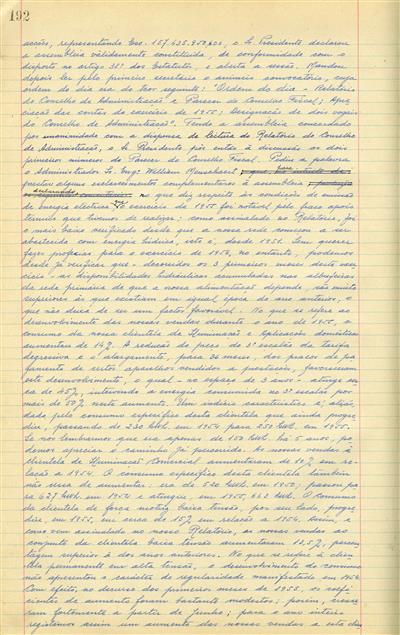 192
acções, representando Esc. 157.635.950$00, o Sr. Presidente declarou
a assembleia válidamente constituida, de conformidade com o
disposto no artigo 38º dos Estatutos, e aberta a sessão. Mandou
depois ler pelo primeiro secretário o anúncio convocatório, cuja
ordem do dia era do teor seguinte: "Ordem do dia - Relatório
do Conselho de Administração e Parecer do Conselho Fiscal; Apre
ciação das contas do exercício de 1955; Designação de dois vogais
do Conselho de Administração". Tendo a assembleia concordado
por unanimidade com a dispensa de leitura do Relatório do Conselho
de Administração, o Sr. Presidente pôs então à discussão os dois
primeiros números do Parecer do Conselho Fiscal. Pediu a palavra
o Administrador Sr. Engº William
prestar alguns esclarecimentos complementares à assembleia
declarando
no que diz respeito às condições de
de energia eléctrica o exercício de 1955 foi notável pelo fraco apoio
térmico que tivemos de realizar: como assinalado no Relatório, foi
o mais baixo verificado desde que a nossa rede começou a ser
abastecida com energia hídrica, isto é, desde 1951. Sem querer
fazer profecias para o exercício de 1956, no entanto, podemos
desde já verificar que - decorridos os 3 primeiros meses deste exer
cício - as disponibilidades hidráulicas acumuladas nas albufeiras
da rede primária de que a nossa alimentação depende, são muito
superiores às que existiam em igual época do ano anterior, o
que não deixa de ser um factor favorável. No que se refere ao
desenvolvimento das nossas vendas durante o ano de 1955, o
consumo da nossa clientela de Iluminação e Aplicações domésticas
aumentou de 14%. A redução do preço do 3º escalão da tarifa
degressiva e o alargamento, para 36 meses, dos prazos de pa
gamento de certos aparelhos vendidos a prestações, favoreceram
este desenvolvimento, o qual - no espaço de 3 anos - atinge cer
ca de 45%, intervindo a energia consumida no 3º escalão por
mais de 50% neste aumento. Um indício característico é
dado pelo consumo específico desta clientela que ainda progre
dire, passando de 230 kWh. em 1954 para 250 kWh. em 1955.
Se nos lembrarmos que era apenas de 150 kWh. há 5 anos, po
demos apreciar o caminho já percorrido. As nossas vendas à
clientela de Iluminação Comercial aumentaram de 80% em re
lação a 1954. O consumo específico desta clientela também
não cessa de aumentar: era de 520 kWh. em 1950; passou pa
ra 627 kWh. em 1954 e atingiu, em 1955, 662 kWh. O consumo
da clientela de força motriz baixa tensão, por seu lado, progre
dire, em 1955, em cerca de 15% em relação a 1954. Assim, e
como vem assinalado no nosso Relatório, as nossas vendas ao
conjunto da clientela baixa tensão aumentaram 13,5%, percen
tagem superior à dos anos anteriores. No que se refere à clien
tela permanente em alta tensão, o desenvolvimento do consumo
não apresentou o carácter de regularidade manifestado em 1954.
Com efeito, no decurso dos primeiros meses de 1955, os coefi
cientes de aumento foram bastante modestos; porém,
ram fortemente a partir de Junho; para o ano inteiro
registámos assim um aumento das nossas vendas a esta clien